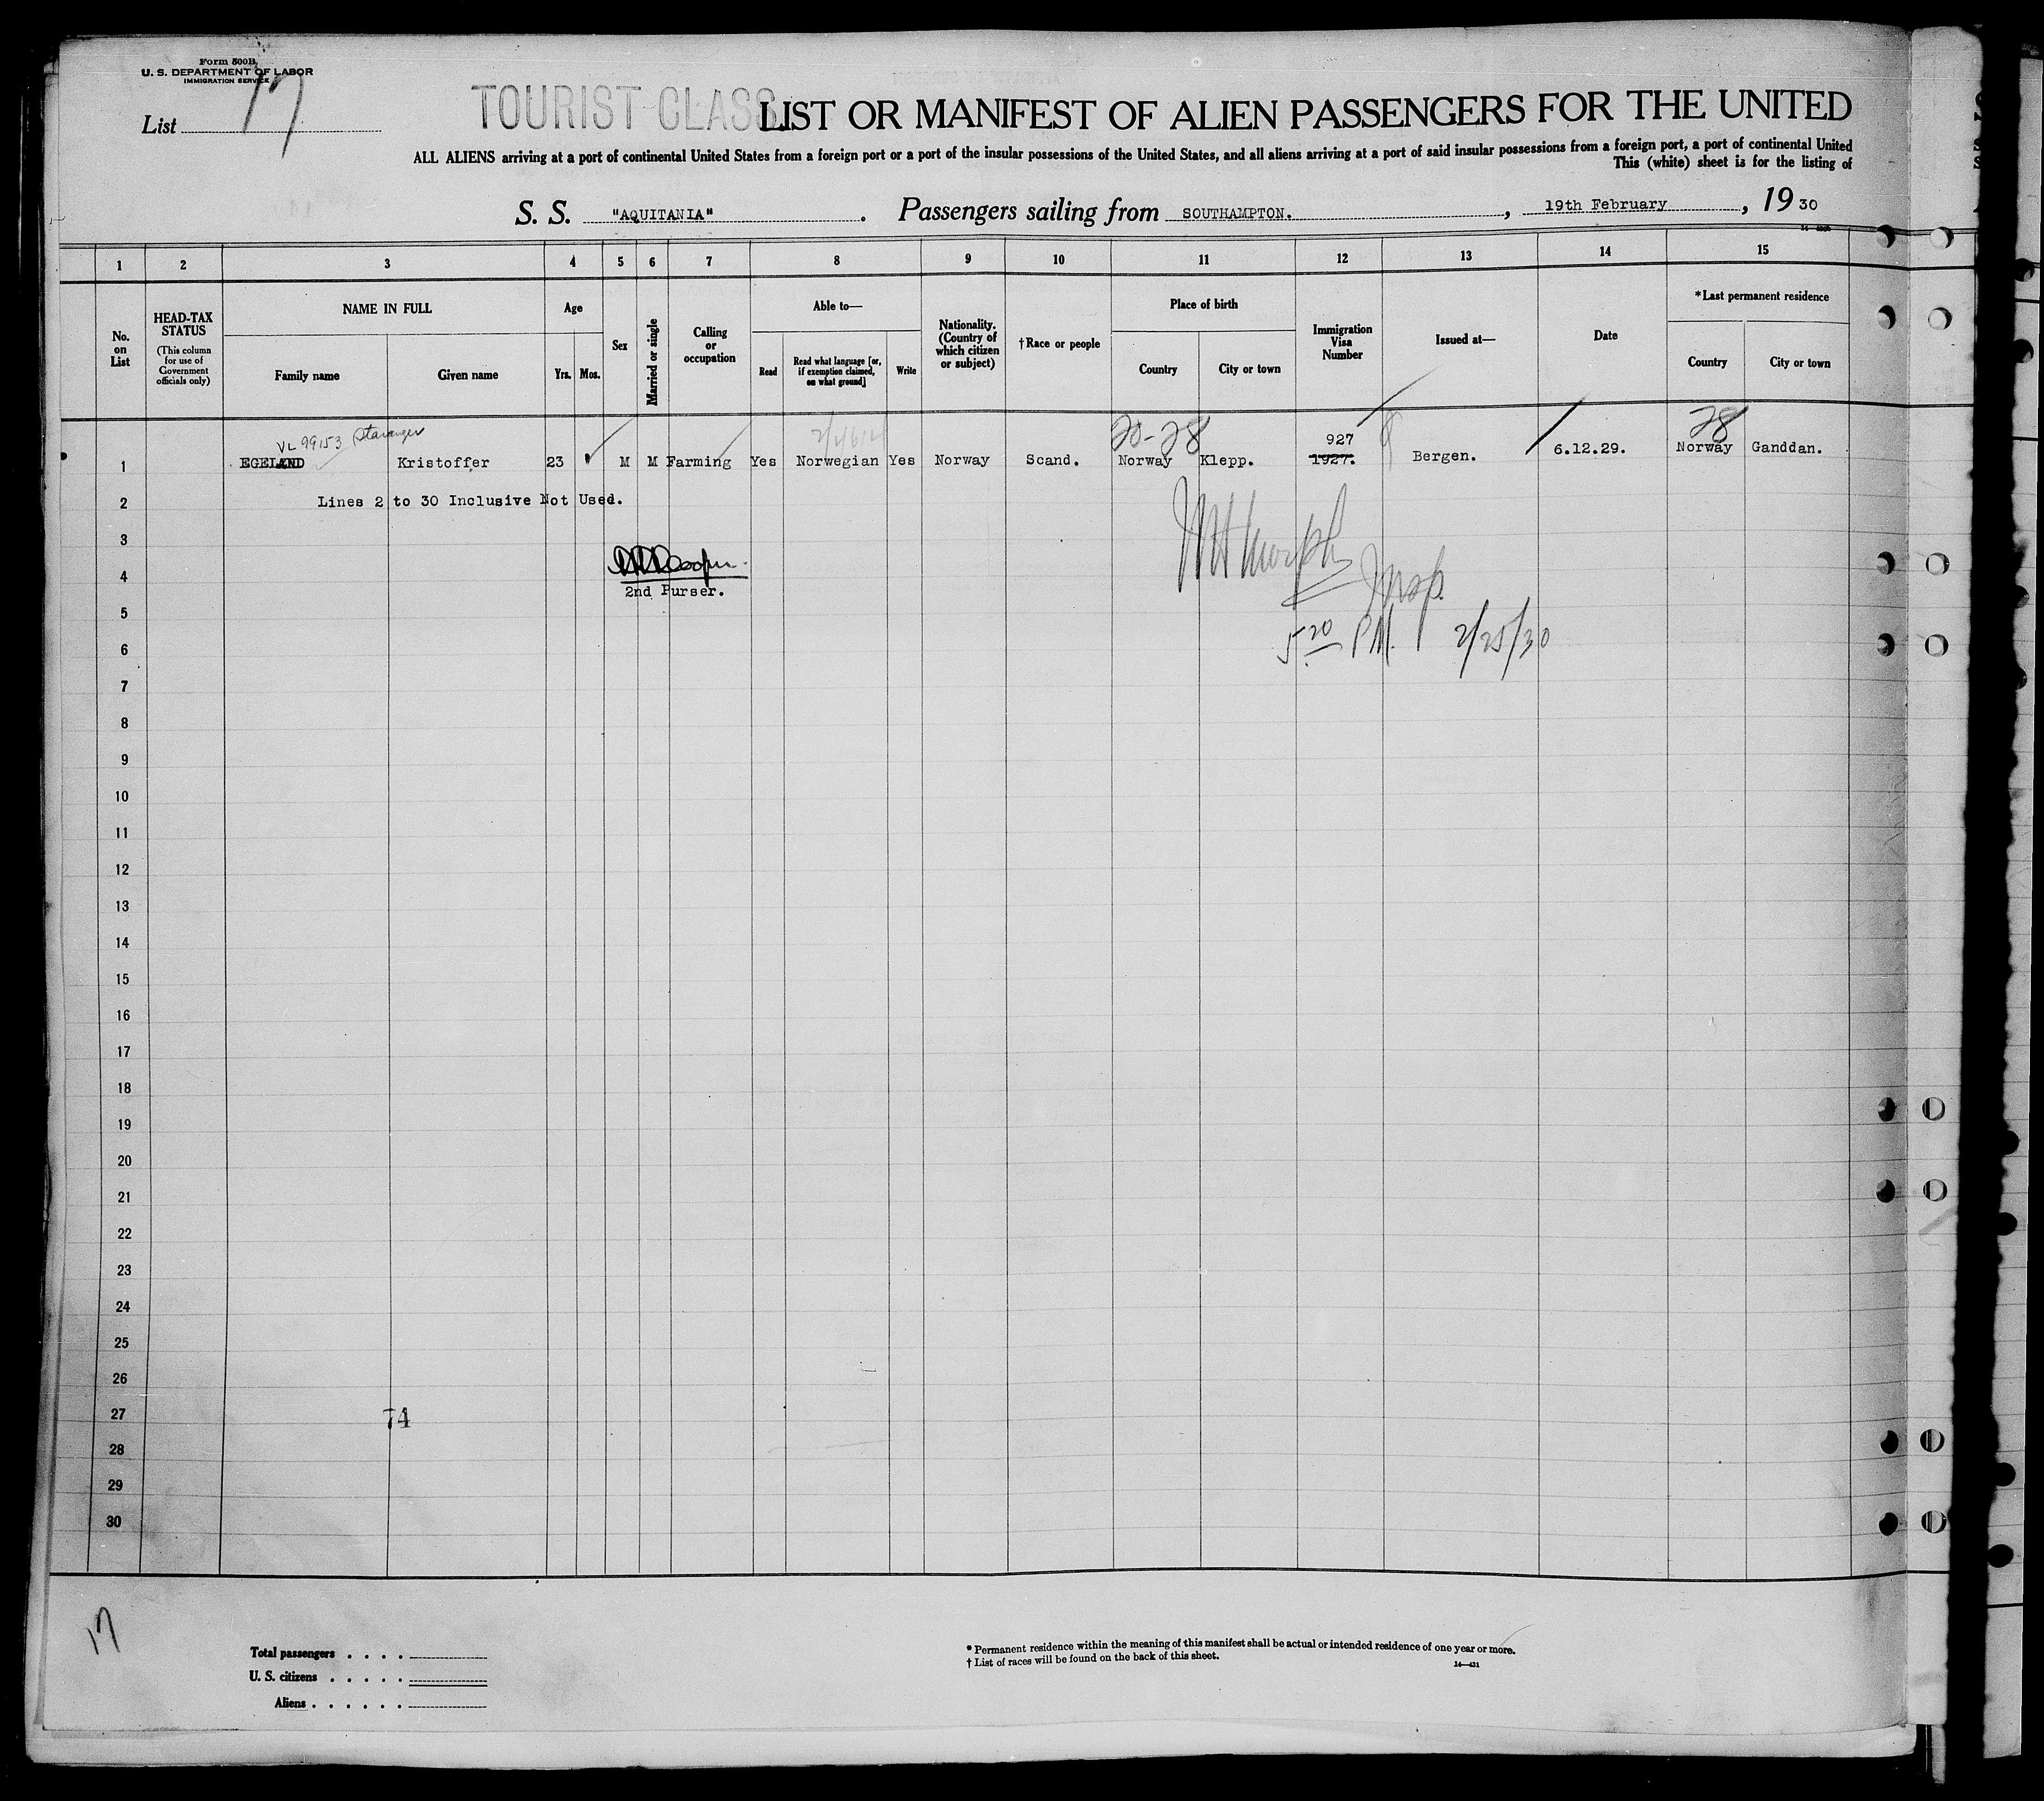 Form 500B
U. S. DEPARTMENT OF LABOR
IMMIGRATION SERVICE
List 17
TOURIST CLASS
LIST OR MANIFEST OF ALIEN PASSENGERS FOR THE UNITED
ALL ALIENS arriving at a port of continental United States from a foreign port or a port of the insular possessions of the United States, and all aliens arriving at a port of said insular possessions from a foreign port, a port of continental United
This (white) sheet is for the listing of
S. S. "AQUITANIA" . Passengers sailing from SOUTHAMPTON. , 19th February , 19 30
1 2 3 4 5 6 7 8 9 10 11 12 13 14 15
No. on List
HEAD-TAX STATUS
(This column for use of Government officials only)
NAME IN FULL
Family name Given name
Age
Yrs. Mos.
Sex
Married or single
Calling or occupation
Able to—
Read
Read what language [or, if exemption claimed, on what ground]
Write
Nationality. (Country of which citizen or subject)
†Race or people
Place of birth
Country City or town
Immigration Visa Number
Issued at—
Date
*Last permanent residence
Country City or town
VL 99153 Stavanger
20-28
927
28
1 EGELAND Kristoffer 23 M M Farming Yes Norwegian Yes Norway Scand. Norway Klepp. 1927. Bergen. 6.12.29. Norway Ganddan.
2 Lines 2 to 30 Inclusive Not Used.
3
4
2nd Purser.
Murphy
Insp.
5
5 20 P.M. 2/25/30
6
7
8
9
10
11
12
13
14
15
16
17
18
19
20
21
22
23
24
25
26
27 74
28
29
30
17
Total passengers . . . .
U. S. citizens . . . . .
Aliens . . . . . .
* Permanent residence within the meaning of this manifest shall be actual or intended residence of one year or more.
† List of races will be found on the back of this sheet.
14—431